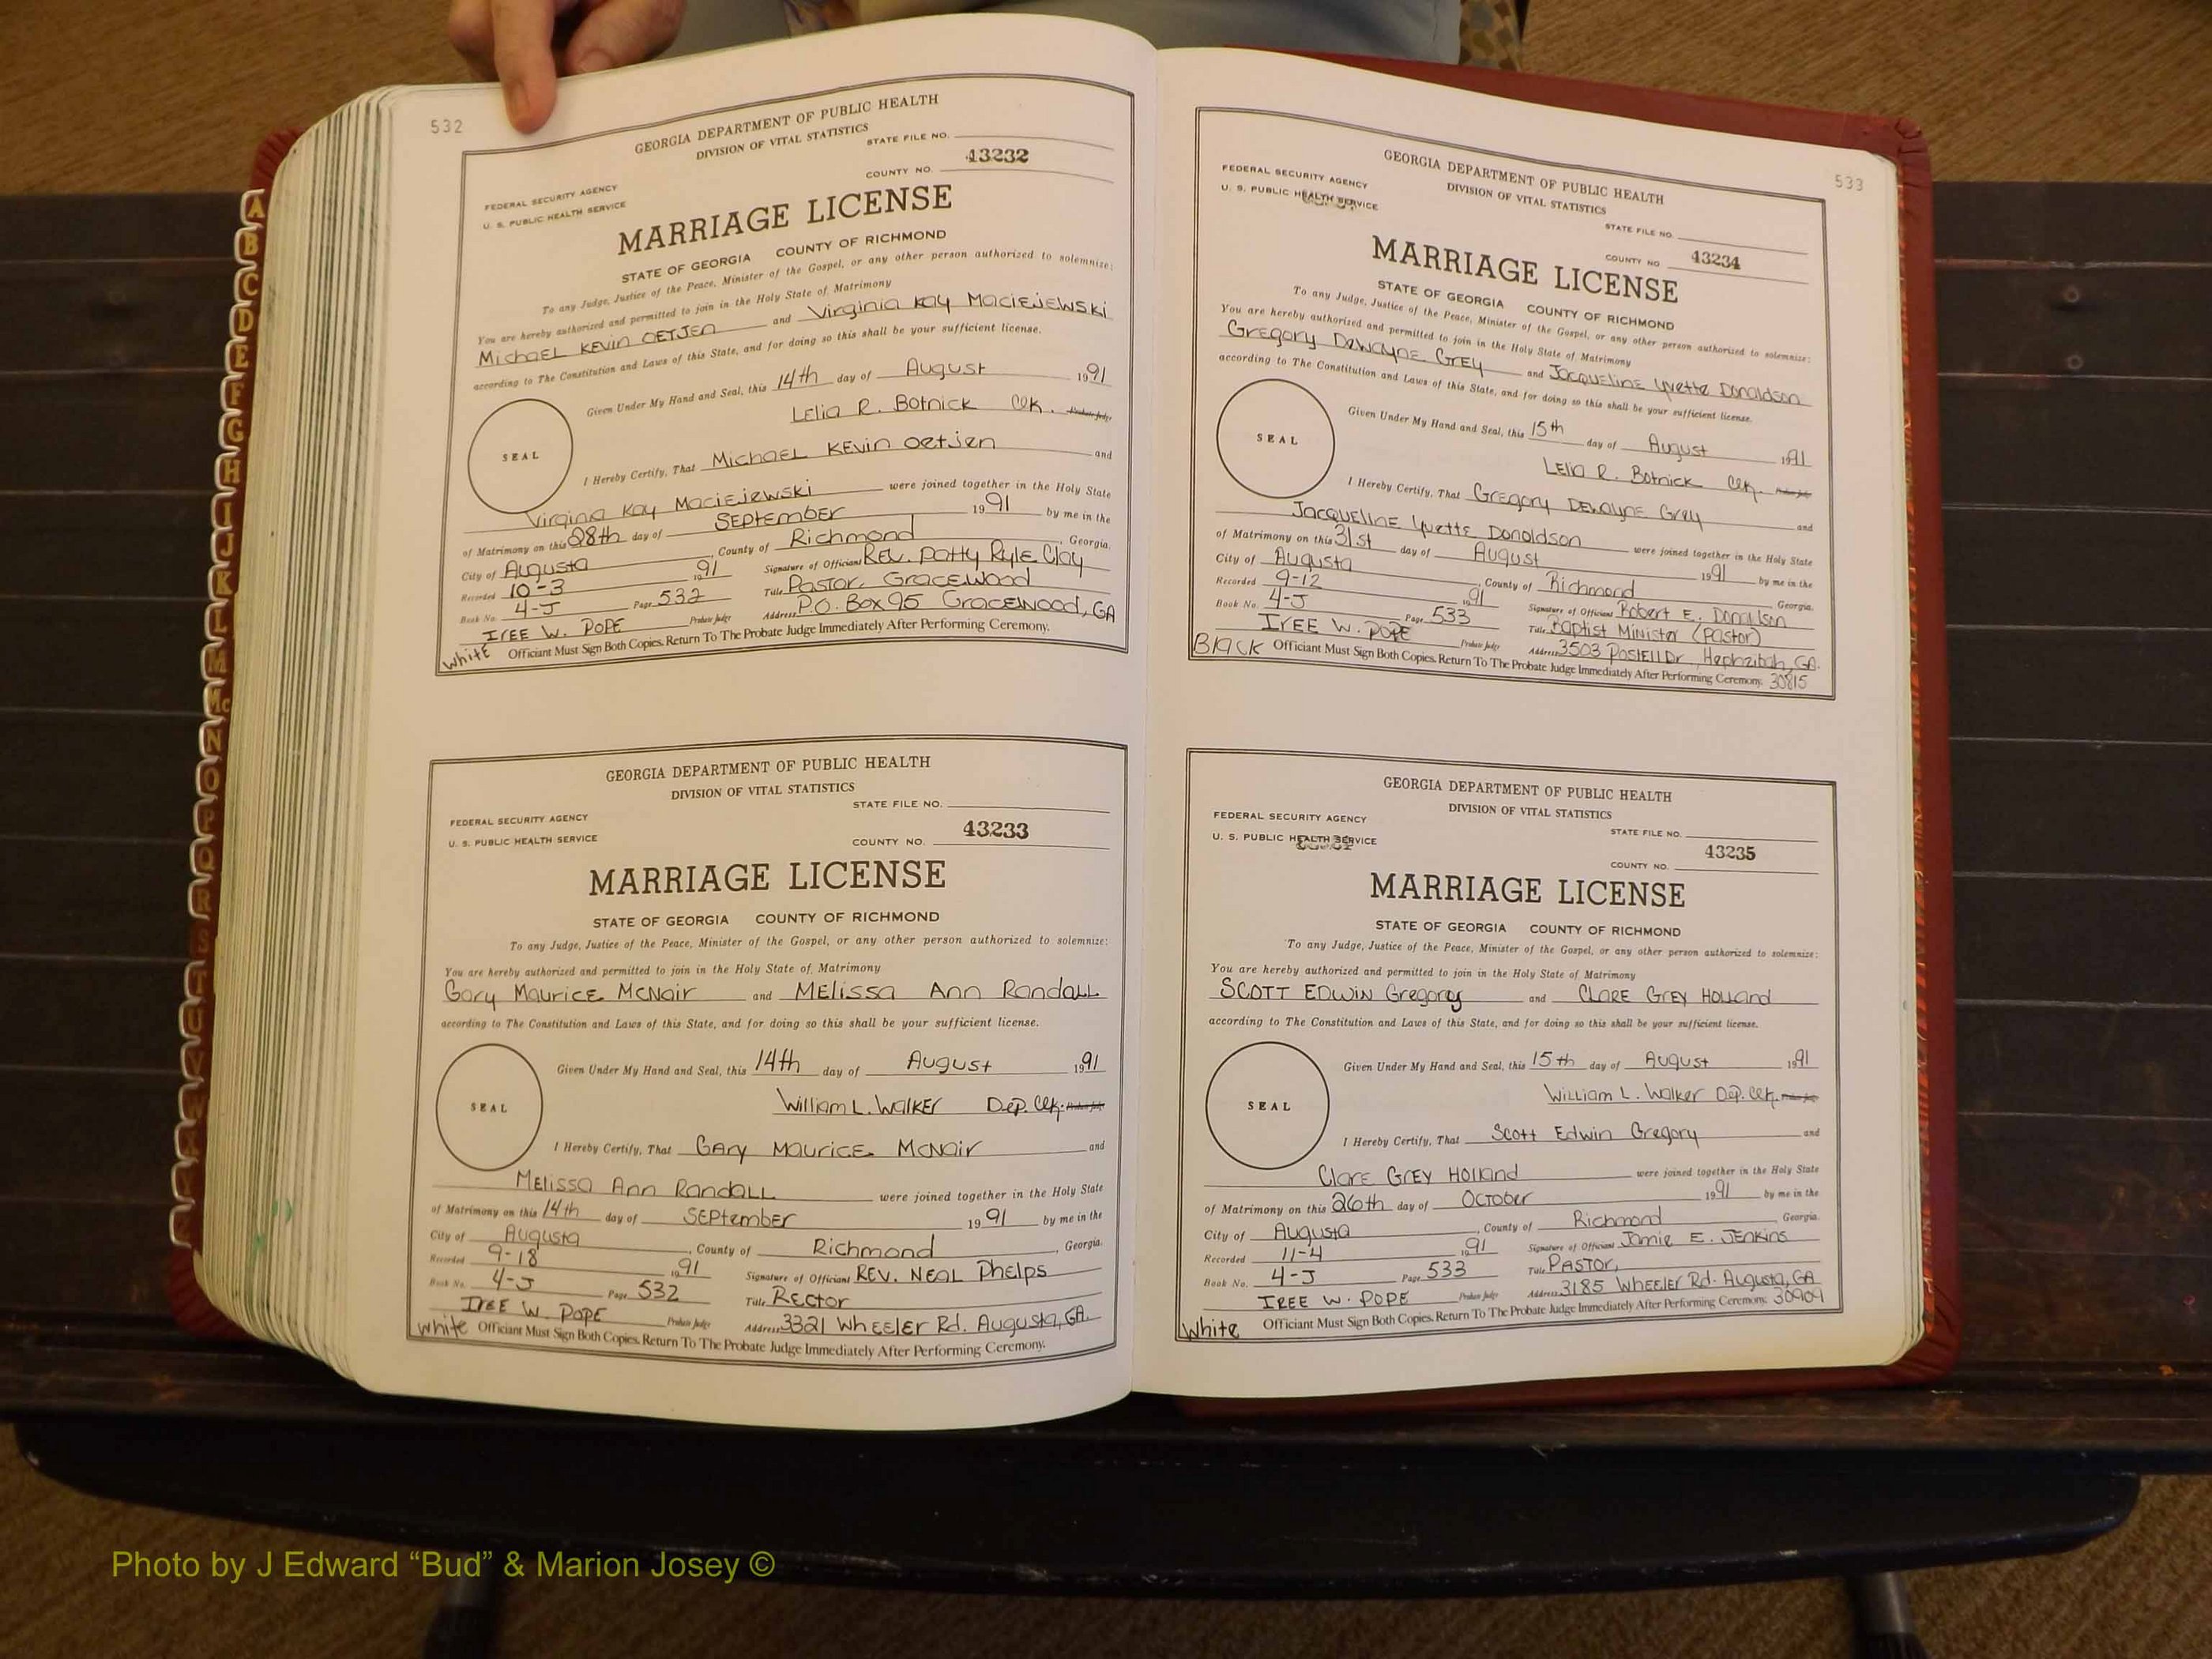 532
GEORGIA DEPARTMENT OF PUBLIC HEALTH
DIVISION OF VITAL STATISTICS
STATE FILE NO.
FEDERAL SECURITY AGENCY
U. S. PUBLIC HEALTH SERVICE
COUNTY NO. 43232
MARRIAGE LICENSE
STATE OF GEORGIA COUNTY OF RICHMOND
To any Judge, Justice of the Peace, Minister of the Gospel, or any other person authorized to solemnize:
You are hereby authorized and permitted to join in the Holy State of Matrimony
Michael Kevin Oetjen and Virginia Kay Maciejewski
according to The Constitution and Laws of this State, and for doing so this shall be your sufficient license.
Given Under My Hand and Seal, this 14th day of August 1991
SEAL
Lelia R. Botnick Clk. Probate Judge
I Hereby Certify, That Michael Kevin Oetjen and
Virginia Kay Maciejewski were joined together in the Holy State
of Matrimony on this 28th day of September 1991 by me in the
City of Augusta, County of Richmond, Georgia.
Recorded 10-3 1991 Signature of Officiant Rev. Patty Ryle Clay
Book No. 4-J Page 532 Title Pastor, Gracewood
Iree W. Pope Probate Judge Address P.O. Box 95 Gracewood, GA
White Officiant Must Sign Both Copies. Return To The Probate Judge Immediately After Performing Ceremony.
GEORGIA DEPARTMENT OF PUBLIC HEALTH
DIVISION OF VITAL STATISTICS
STATE FILE NO.
FEDERAL SECURITY AGENCY
U. S. PUBLIC HEALTH SERVICE
COUNTY NO. 43233
MARRIAGE LICENSE
STATE OF GEORGIA COUNTY OF RICHMOND
To any Judge, Justice of the Peace, Minister of the Gospel, or any other person authorized to solemnize:
You are hereby authorized and permitted to join in the Holy State of Matrimony
Gary Maurice McNair and Melissa Ann Randall
according to The Constitution and Laws of this State, and for doing so this shall be your sufficient license.
Given Under My Hand and Seal, this 14th day of August 1991
SEAL
William L. Walker Dep. Clk. Probate Judge
I Hereby Certify, That Gary Maurice McNair and
Melissa Ann Randall were joined together in the Holy State
of Matrimony on this 14th day of September 1991 by me in the
City of Augusta, County of Richmond, Georgia.
Recorded 9-18 1991 Signature of Officiant Rev. Neal Phelps
Book No. 4-J Page 532 Title Rector
Iree W. Pope Probate Judge Address 3321 Wheeler Rd. Augusta, GA.
White Officiant Must Sign Both Copies. Return To The Probate Judge Immediately After Performing Ceremony.
533
GEORGIA DEPARTMENT OF PUBLIC HEALTH
DIVISION OF VITAL STATISTICS
FEDERAL SECURITY AGENCY
U. S. PUBLIC HEALTH SERVICE
STATE FILE NO.
COUNTY NO. 43234
MARRIAGE LICENSE
STATE OF GEORGIA COUNTY OF RICHMOND
To any Judge, Justice of the Peace, Minister of the Gospel, or any other person authorized to solemnize:
You are hereby authorized and permitted to join in the Holy State of Matrimony
Gregory Dewayne Grey and Jacqueline Yvette Donaldson
according to The Constitution and Laws of this State, and for doing so this shall be your sufficient license.
Given Under My Hand and Seal, this 15th day of August 1991
SEAL
Lelia R. Botnick Clk. Probate Judge
I Hereby Certify, That Gregory Dewayne Grey and
Jacqueline Yvette Donaldson were joined together in the Holy State
of Matrimony on this 31st day of August 1991 by me in the
City of Augusta, County of Richmond Georgia.
Recorded 9-12 1991 Signature of Officiant Robert E. Donalson
Book No. 4-J Page 533 Title Baptist Minister (Pastor)
Iree W. Pope Probate Judge Address 3503 Postell Dr., Hephzibah, GA.
Black Officiant Must Sign Both Copies. Return To The Probate Judge Immediately After Performing Ceremony. 30815
GEORGIA DEPARTMENT OF PUBLIC HEALTH
DIVISION OF VITAL STATISTICS
FEDERAL SECURITY AGENCY
U. S. PUBLIC HEALTH SERVICE
STATE FILE NO.
COUNTY NO. 43235
MARRIAGE LICENSE
STATE OF GEORGIA COUNTY OF RICHMOND
To any Judge, Justice of the Peace, Minister of the Gospel, or any other person authorized to solemnize:
You are hereby authorized and permitted to join in the Holy State of Matrimony
Scott Edwin Gregory and Clare Grey Holland
according to The Constitution and Laws of this State, and for doing so this shall be your sufficient license.
Given Under My Hand and Seal, this 15th day of August 1991
SEAL
William L. Walker Dep. Clk. Probate Judge
I Hereby Certify, That Scott Edwin Gregory and
Clare Grey Holland were joined together in the Holy State
of Matrimony on this 26th day of October 1991 by me in the
City of Augusta, County of Richmond Georgia.
Recorded 11-4 1991 Signature of Officiant Jamie E. Jenkins
Book No. 4-J Page 533 Title Pastor,
Iree W. Pope Probate Judge Address 3185 Wheeler Rd. Augusta, GA
White Officiant Must Sign Both Copies. Return To The Probate Judge Immediately After Performing Ceremony. 30909
A
B
C
D
E
F
G
H
I
J
K
L
M
Mc
N
O
P
Q
R
S
T
Photo by J Edward “Bud” & Marion Josey ©